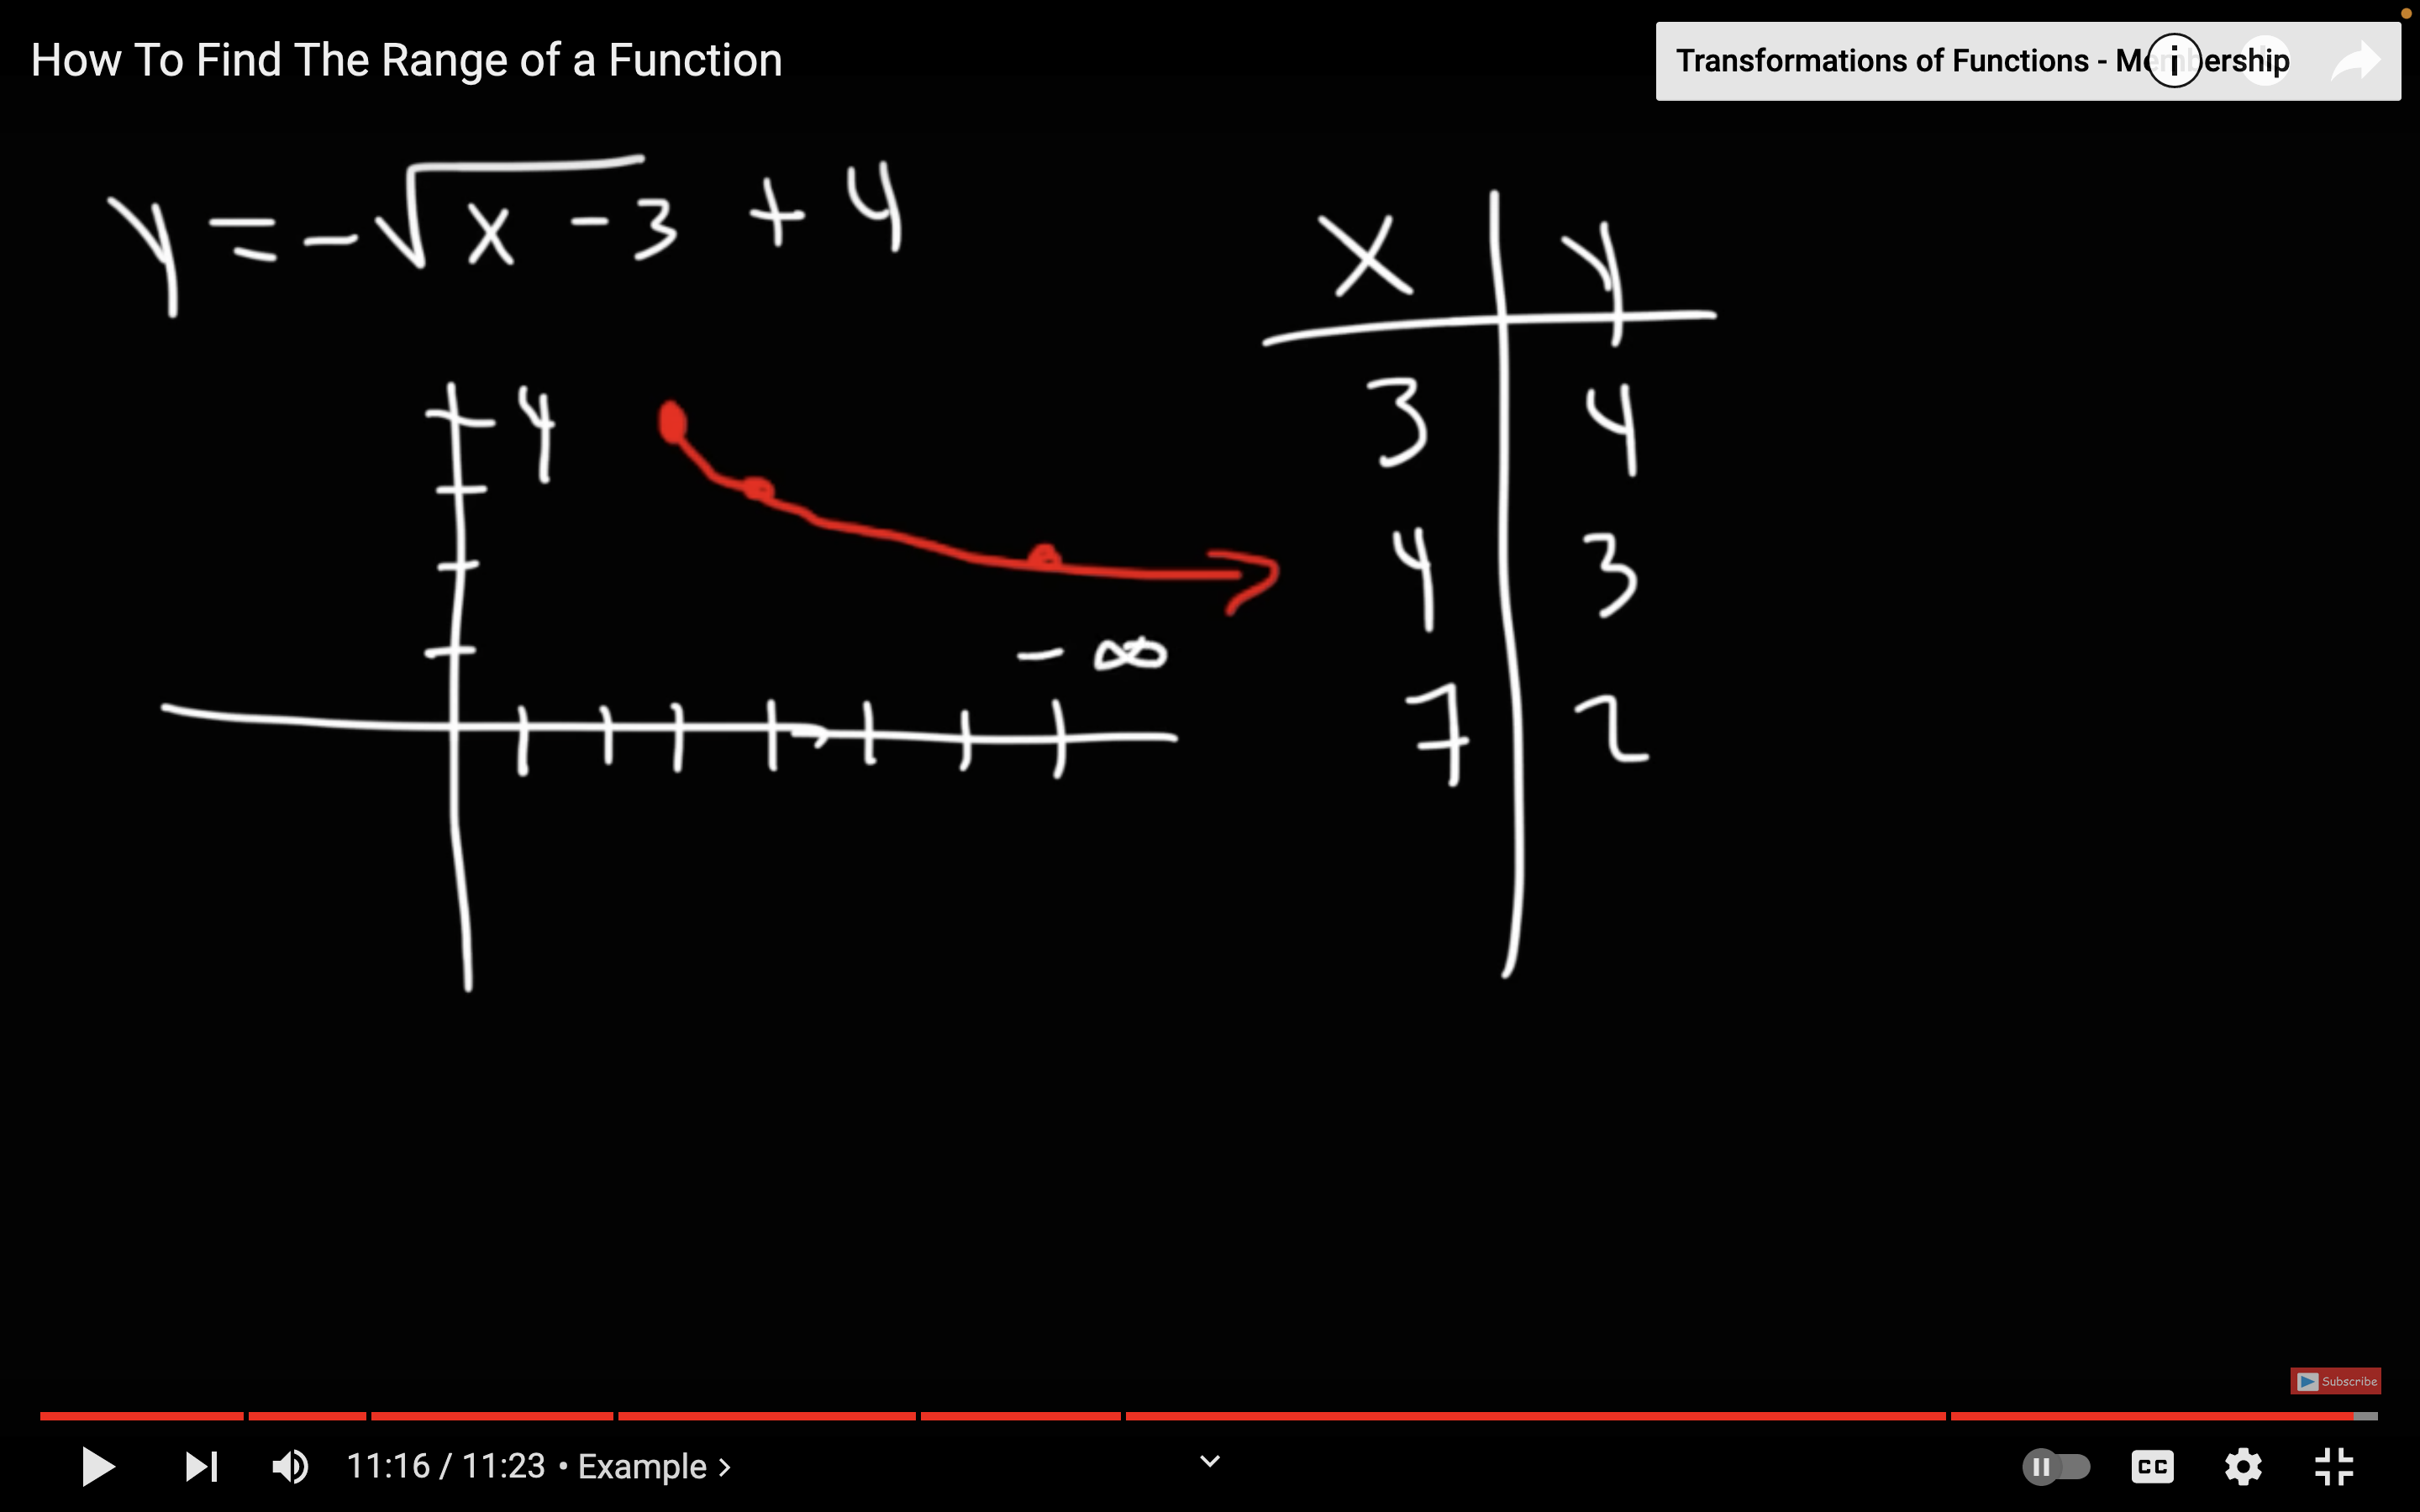 How To Find The Range of a Function
Transformations of Functions - Membership
y = -√x - 3 + 4
x y
3 4
4 3
7 2
4
- ∞
Subscribe
11:16 / 11:23 • Example >
CC